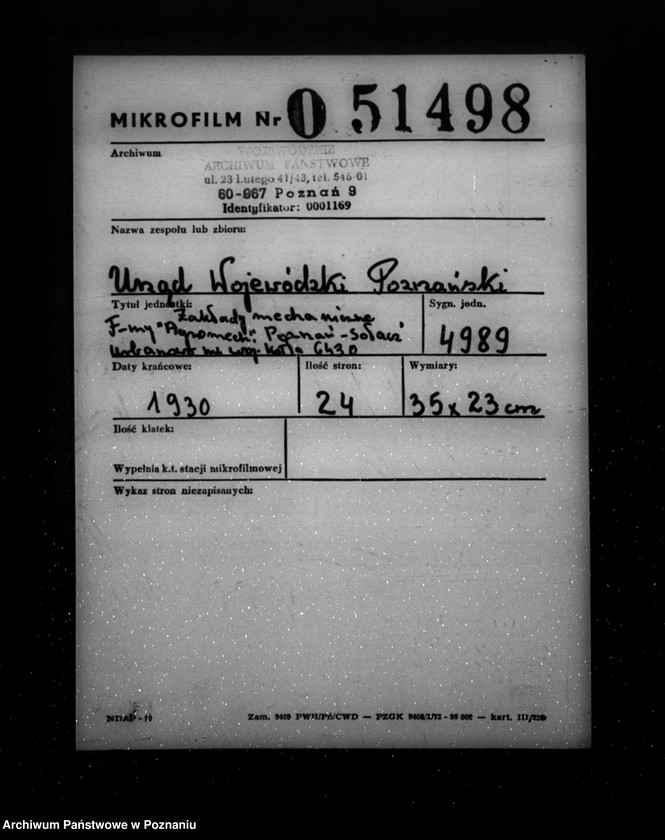 MIKROFILM Nr 0 51498
Archiwum
WOJEWÓDZKIE
ARCHIWUM PAŃSTWOWE
ul. 23 Lutego 41/43, tel. 546-01
60-967 Poznań 9
Identyfikator: 0001169
Nazwa zespołu lub zbioru:
Urząd Wojewódzki Poznański
Tytuł jednostki:
Zakłady mechaniczne
F-my "Agromech". Poznań-Sołacz
kotła 6430
Sygn. jedn.
4989
Daty krańcowe:
1930
Ilość stron:
24
Wymiary:
35 x 23 cm
Ilość klatek:
Wypełnia k.t. stacji mikrofilmowej
Wykaz stron niezapisanych:
NDAP-10
Zam. 9409 PWH/Pń/CWD — PZGK — kart.
Archiwum Państwowe w Poznaniu